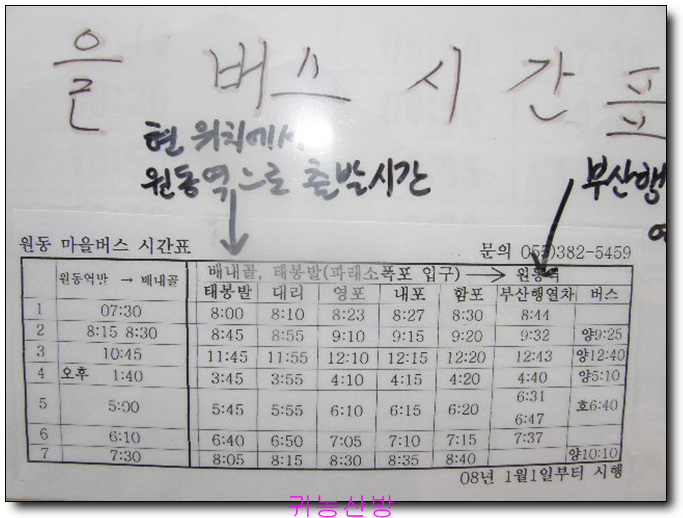 을 버스 시간표
현 위치에서
원동역으로 출발시간
부산행
원동 마을버스 시간표
문의 055)382-5459
원동역발 → 배내골 배내골, 태봉발(파래소폭포 입구) → 원동역
태봉발 대리 영포 내포 함포 부산행열차 버스
1 07:30 8:00 8:10 8:23 8:27 8:30 8:44
2 8:15 8:30 8:45 8:55 9:10 9:15 9:20 9:32 양9:25
3 10:45 11:45 11:55 12:10 12:15 12:20 12:43 양12:40
4 오후 1:40 3:45 3:55 4:10 4:15 4:20 4:40 양5:10
5 5:00 5:45 5:55 6:10 6:15 6:20 6:31 6:47 호6:40
6 6:10 6:40 6:50 7:05 7:10 7:15 7:37
7 7:30 8:05 8:15 8:30 8:35 8:40 양10:10
08년 1월1일부터 시행
귀농산방